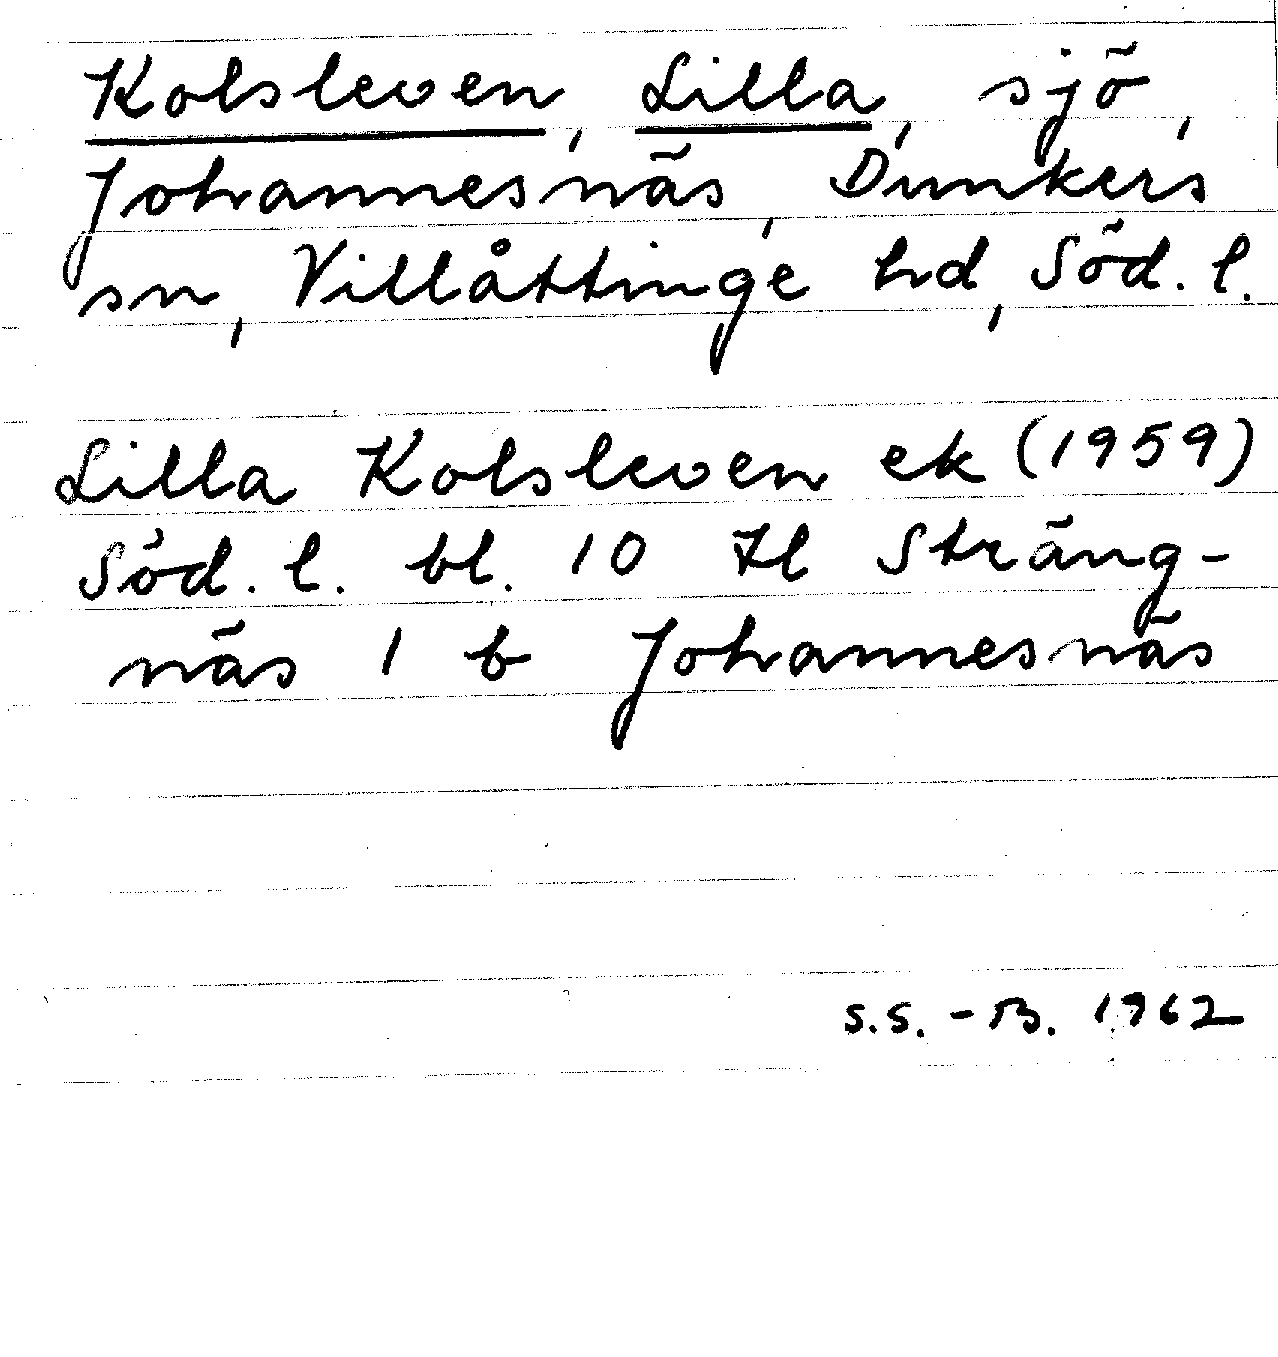 Kolsleven, Lilla, sjö,
Johannesnäs, Dunkers
sn, Villåttinge hd, Söd. l.
Lilla Kolsleven ek (1959)
Söd. l. bl. 10 Il Sträng-
näs 1 b Johannesnäs
S.S. - B. 1962